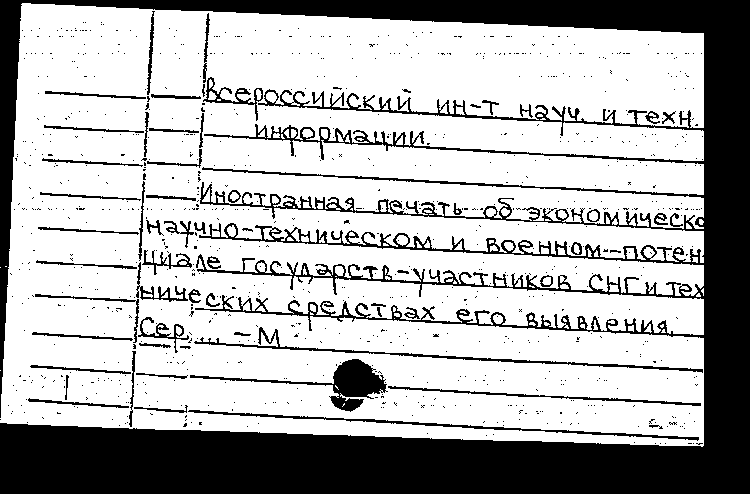 Всероссийский ин-т науч. и техн.
информации.
Иностранная печать об экономическо
научно-техническом и военном-потен-
циале государств-участников СНГ и тех
нических средствах его выявления.
Сер. ... - М